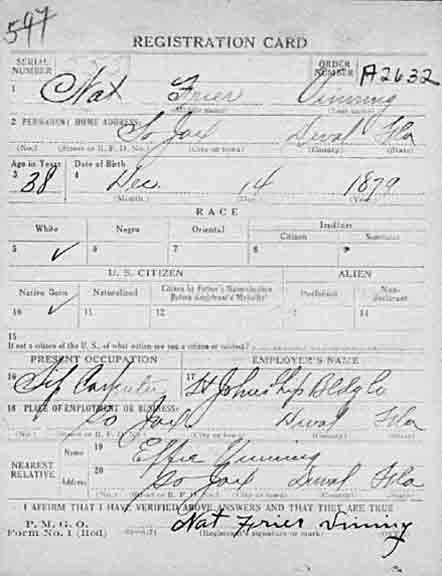 547
REGISTRATION CARD
SERIAL NUMBER ORDER NUMBER A2632
1 Nat Frier Vinning
(First name) (Middle name) (Last name)
2 PERMANENT HOME ADDRESS:
So Jax Duval Fla
(No.) (Street or R. F. D. No.) (City or town) (County) (State)
Age in Years Date of Birth
3 38 4 Dec. 14 1879
(Month.) (Day.) (Year.)
RACE
White Negro Oriental Indian
Citizen Noncitizen
5 ✓ 6 7 8 9
U. S. CITIZEN ALIEN
Native Born Naturalized Citizen by Father's Naturalization Before Registrant's Majority Declarant Non-declarant
10 ✓ 11 12 13 14
15
If not a citizen of the U. S., of what nation are you a citizen or subject?
PRESENT OCCUPATION EMPLOYER'S NAME
16 Carpenter 17 St Johns Ship Bldg Co
18 PLACE OF EMPLOYMENT OR BUSINESS:
So Jax Duval Fla
(No.) (Street or R. F. D. No.) (City or town) (County) (State)
NEAREST RELATIVE
Name 19 Effie Vinning
Address 20 So Jax Duval Fla
(No.) (Street or R. F. D. No.) (City or town) (County) (State)
I AFFIRM THAT I HAVE VERIFIED ABOVE ANSWERS AND THAT THEY ARE TRUE
P. M. G. O.
Form No. 1 (Red) Nat Frier Vinning
(Registrant's signature or mark)